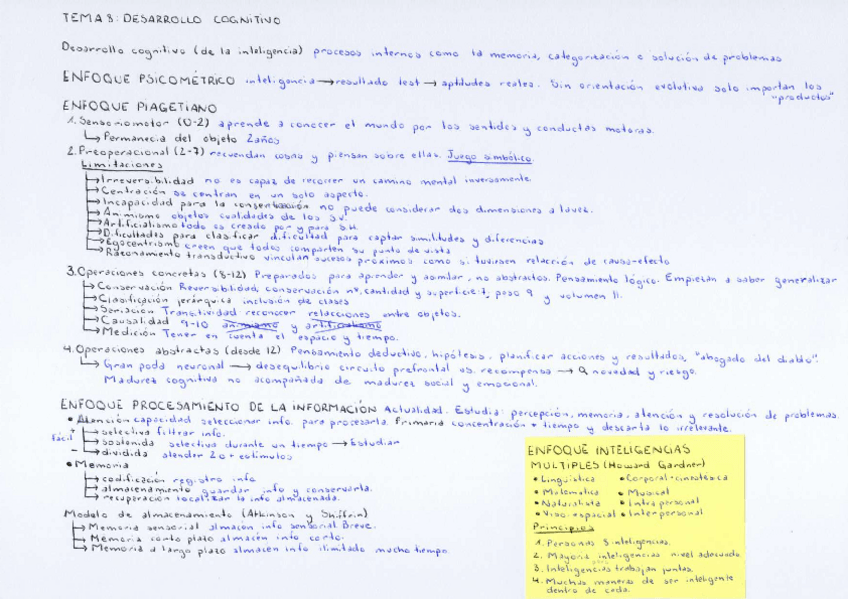 TEMA 8: DESARROLLO COGNITIVO
Desarrollo cognitivo (de la inteligencia) procesos internos como la memoria, categorización o solución de problemas
ENFOQUE PSICOMÉTRICO inteligencia → resultado test → aptitudes reales. Sin orientación evolutiva solo importan los
"productos"
ENFOQUE PIAGETIANO
1. Sensoriomotor (0-2) aprende a conocer el mundo por los sentidos y conductas motoras.
↳ Permanecia del objeto 2años
2. Preoperacional (2-7) recuerdan cosas y piensan sobre ellas. Juego simbólico.
Limitaciones
→ Irreversibilidad no es capaz de recorrer un camino mental inversamente.
→ Centración se centran en un solo aspecto.
→ Incapacidad para la conservación no puede considerar dos dimensiones a la vez.
→ Animismo objetos cualidades de los S.V.
→ Artificialismo todo es creado por y para S.H.
→ Dificultades para clasificar dificultad para captar similitudes y diferencias
→ Egocentrismo creen que todos comparten su punto de vista
→ Razonamiento transductivo vinculan sucesos próximos como si tuviesen relacción de causa-efecto
3. Operaciones concretas (8-12) Preparados para aprender y asimilar, no abstractos. Pensamiento lógico. Empiezan a saber generalizar
→ Conservación Reversibilidad, conservación nº, cantidad y superficie 7, peso 9 y volumen 11.
→ Clasificación jerárquica inclusión de clases
→ Seriación Transitividad reconocer relacciones entre objetos.
→ Causalidad 9-10 animismo y artificialismo
→ Medición Tener en cuenta el espacio y tiempo.
4. Operaciones abstractas (desde 12) Pensamiento deductivo, hipótesis, planificar acciones y resultados, "abogado del diablo".
↳ Gran poda neuronal → desequilibrio circuito prefrontal vs. recompensa → novedad y riesgo.
Madurez cognitiva no acompañada de madurez social y emocional.
ENFOQUE PROCESAMIENTO DE LA INFORMACIÓN Actualidad. Estudia: percepción, memoria, atención y resolución de problemas.
• Atención capacidad seleccionar info. para procesarla. Primaria concentración + tiempo y descarta lo irrelevante.
fácil + → selectiva filtrar info.
→ sostenida selectiva durante un tiempo → Estudiar
- → dividida atender 2 o + estímulos
• Memoria
→ codificación registro info
→ almacenamiento guardar info y conservarla.
→ recuperación localizar la info almacenada.
Modelo de almacenamiento (Atkinson y Shiffrin)
→ Memoria sensorial almacén info sensorial Breve.
→ Memoria corto plazo almacén info corto.
→ Memoria a largo plazo almacén info ilimitado mucho tiempo.
ENFOQUE INTELIGENCIAS
MÚLTIPLES (Howard Gardner)
• Linguística • Corporal-cinestésica
• Matemática • Musical
• Naturalista • Intrapersonal
• Viso-espacial • Interpersonal
Principios
1. Personas 8 inteligencias.
2. Mayoría inteligencias nivel adecuado
3. Inteligencias trabajan juntas.
4. Muchas maneras de ser inteligente
dentro de cada.